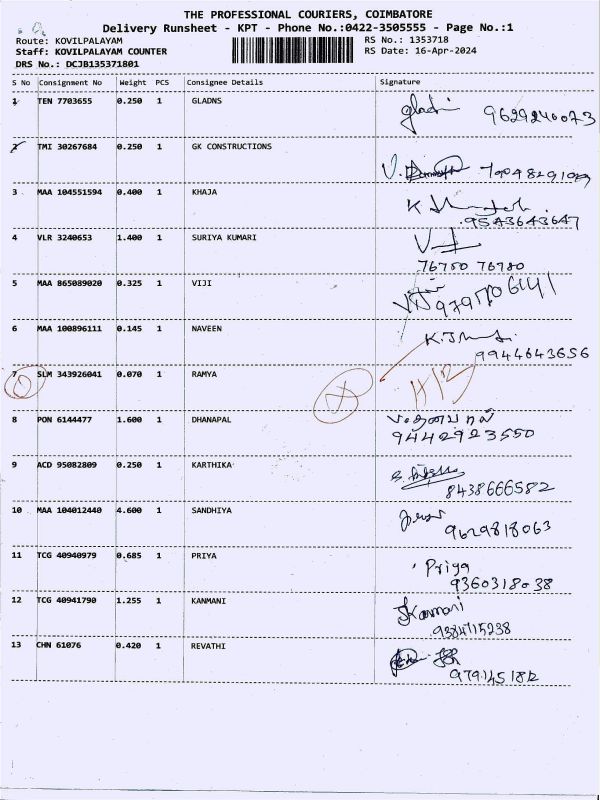 THE PROFESSIONAL COURIERS, COIMBATORE
Delivery Runsheet - KPT - Phone No.:0422-3505555 - Page No.:1
Route: KOVILPALAYAM
RS No.: 1353718
Staff: KOVILPALAYAM COUNTER
RS Date: 16-Apr-2024
DRS No.: DCJB135371801
S No Consignment No Weight PCS Consignee Details Signature
1 TEN 7703655 0.250 1 GLADNS 9629240073
2 TMI 30267684 0.250 1 GK CONSTRUCTIONS
3 MAA 104551594 0.400 1 KHAJA
9543643647
4 VLR 3240653 1.400 1 SURIYA KUMARI
76750 76780
5 MAA 865089020 0.325 1 VIJI
6 MAA 100896111 0.145 1 NAVEEN
9944643656
7 SLM 343926041 0.070 1 RAMYA
8 PON 6144477 1.600 1 DHANAPAL
9442923550
9 ACD 95082809 0.250 1 KARTHIKA
8438666582
10 MAA 104012440 4.600 1 SANDHIYA
9629818063
11 TCG 40940979 0.685 1 PRIYA Priya
9360318038
12 TCG 40941790 1.255 1 KANMANI Kanmani
9384715238
13 CHN 61076 0.420 1 REVATHI